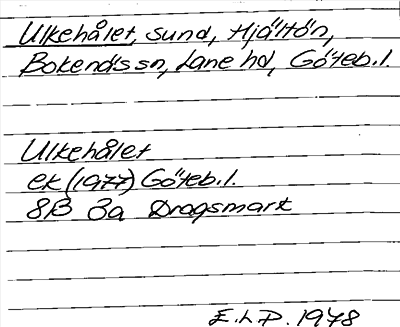 Ulkehålet, sund, Hjältön,
Bokenäs sn, Lane hd, Göteb. l.
Ulkehålet
ek (1977) Göteb. l.
8B 3a Dragsmark
E. L. P. 1978